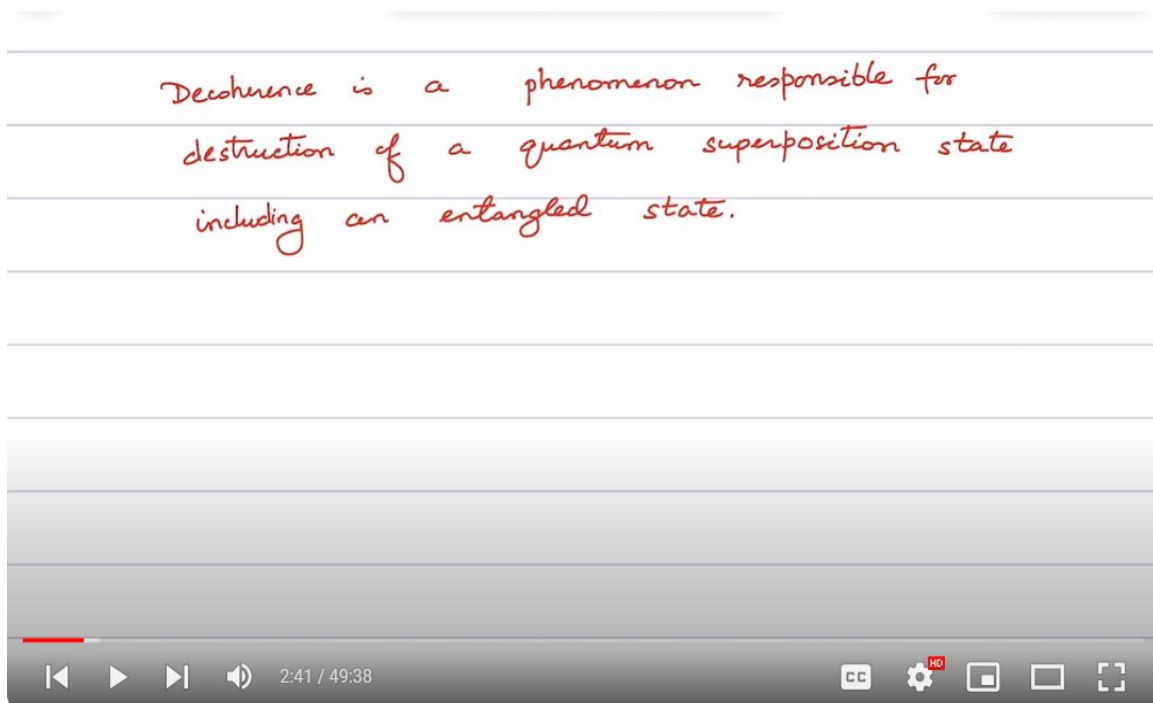 Decoherence is a phenomenon responsible for
destruction of a quantum superposition state
including an entangled state.
2:41 / 49:38
CC
HD